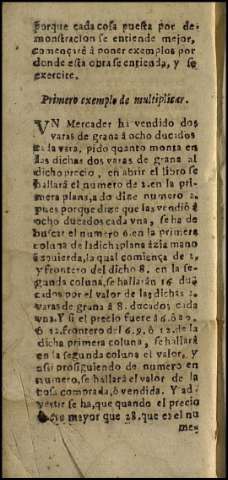 porque cada cosa puesta por de-
monstracion se entiende mejor,
començaré á poner exemplos por
donde esta obra se entienda, y se
exercite.
Primero exemplo de multiplicar.
VN Mercader há vendido dos
varas de grana á ocho ducados
la vara, pido quanto monta en
las dichas dos varas de grana al
dicho precio, en abrir el libro se
hallará el numero de 2. en la pri-
mera plana, adó dize numero 2.
pues porque dize que las vendió á
ocho ducados cada vna, se ha de
buscar el numero 8. en la primera
coluna de la dicha plana ázia mano
izquierda, la qual comença de 1,
y frontero del dicho 8. en la se-
gunda coluna, se hallarán 16 du-
cados por el valor de las dichas 2.
varas de grana á 8. ducados cada
vna. Y si el precio fuere
ò 12. frontero del 6. 9. ò 12. de la
dicha primera coluna, se hallará
en la segunda coluna el valor, y
assi prosiguiendo de numero en
numero, se hallará el valor de la
cosa comprada, ò vendida. Y ad-
vertir se ha, que quando el precio
mayor que 28. que es el nu
me